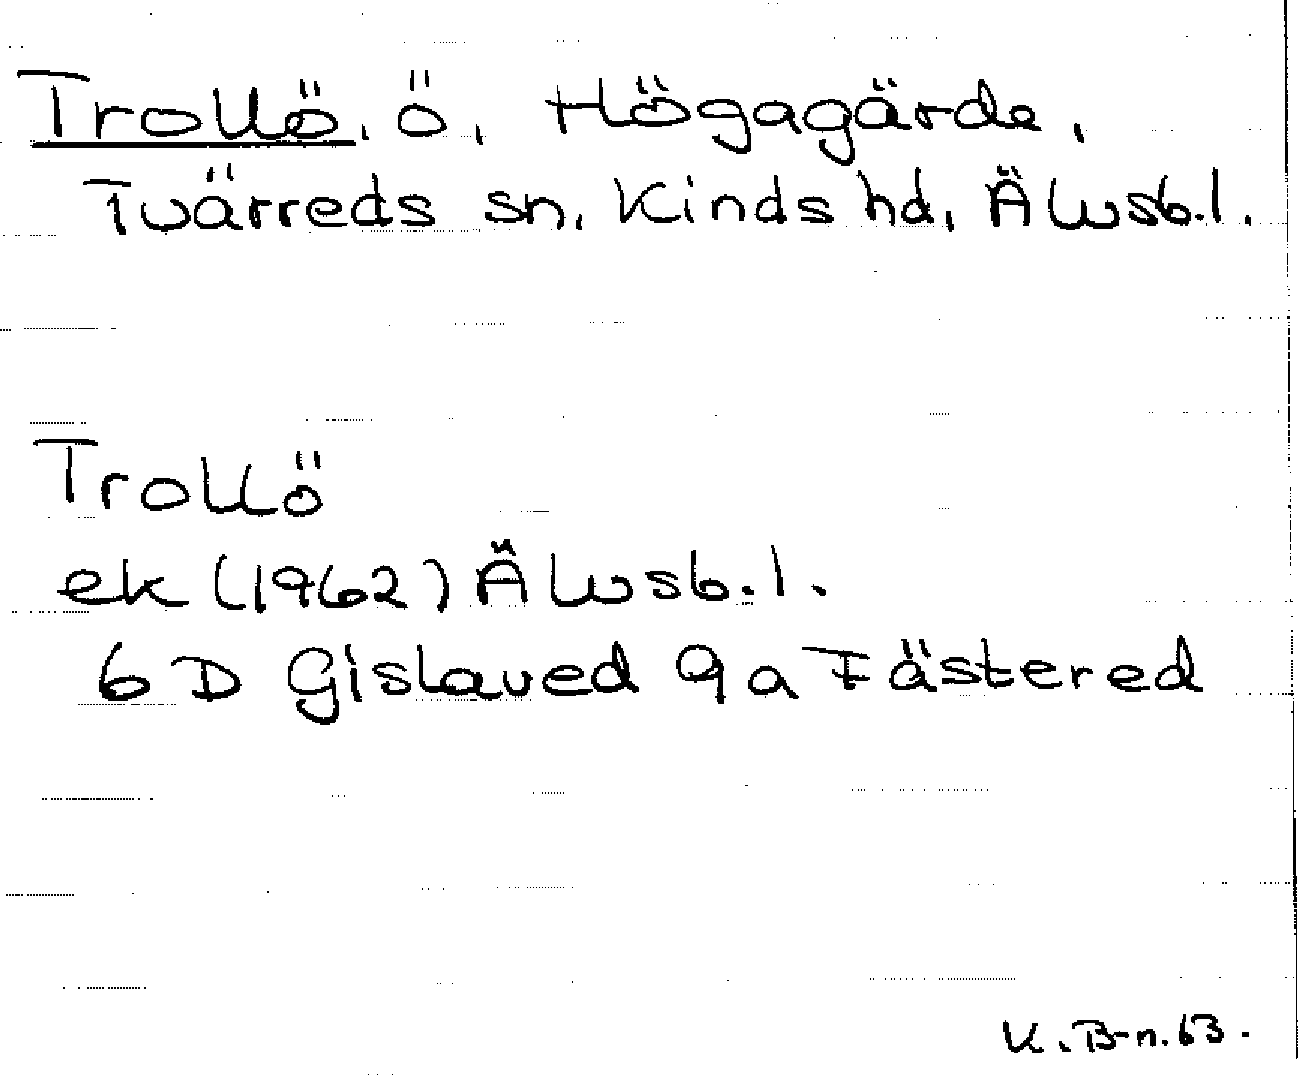 Trollö, ö, Högagärde,
Tvärreds sn, Kinds hd, Älvsb.l.
Trollö
ek (1962) Älvsb.l.
6 D Gislaved 9 a Fästered
K.B-n.63.